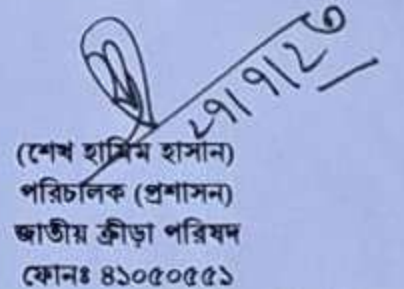 ২৭/৭/২৩
(শেখ হামিম হাসান)
পরিচালক (প্রশাসন)
জাতীয় ক্রীড়া পরিষদ
ফোনঃ ৪১০৫০৫৫১